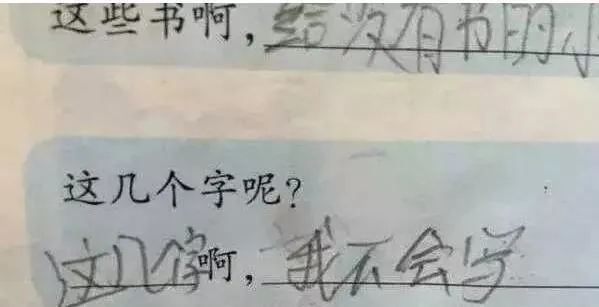 这些书啊，给没有书的小
这几个字呢？
这几个字啊，我不会写